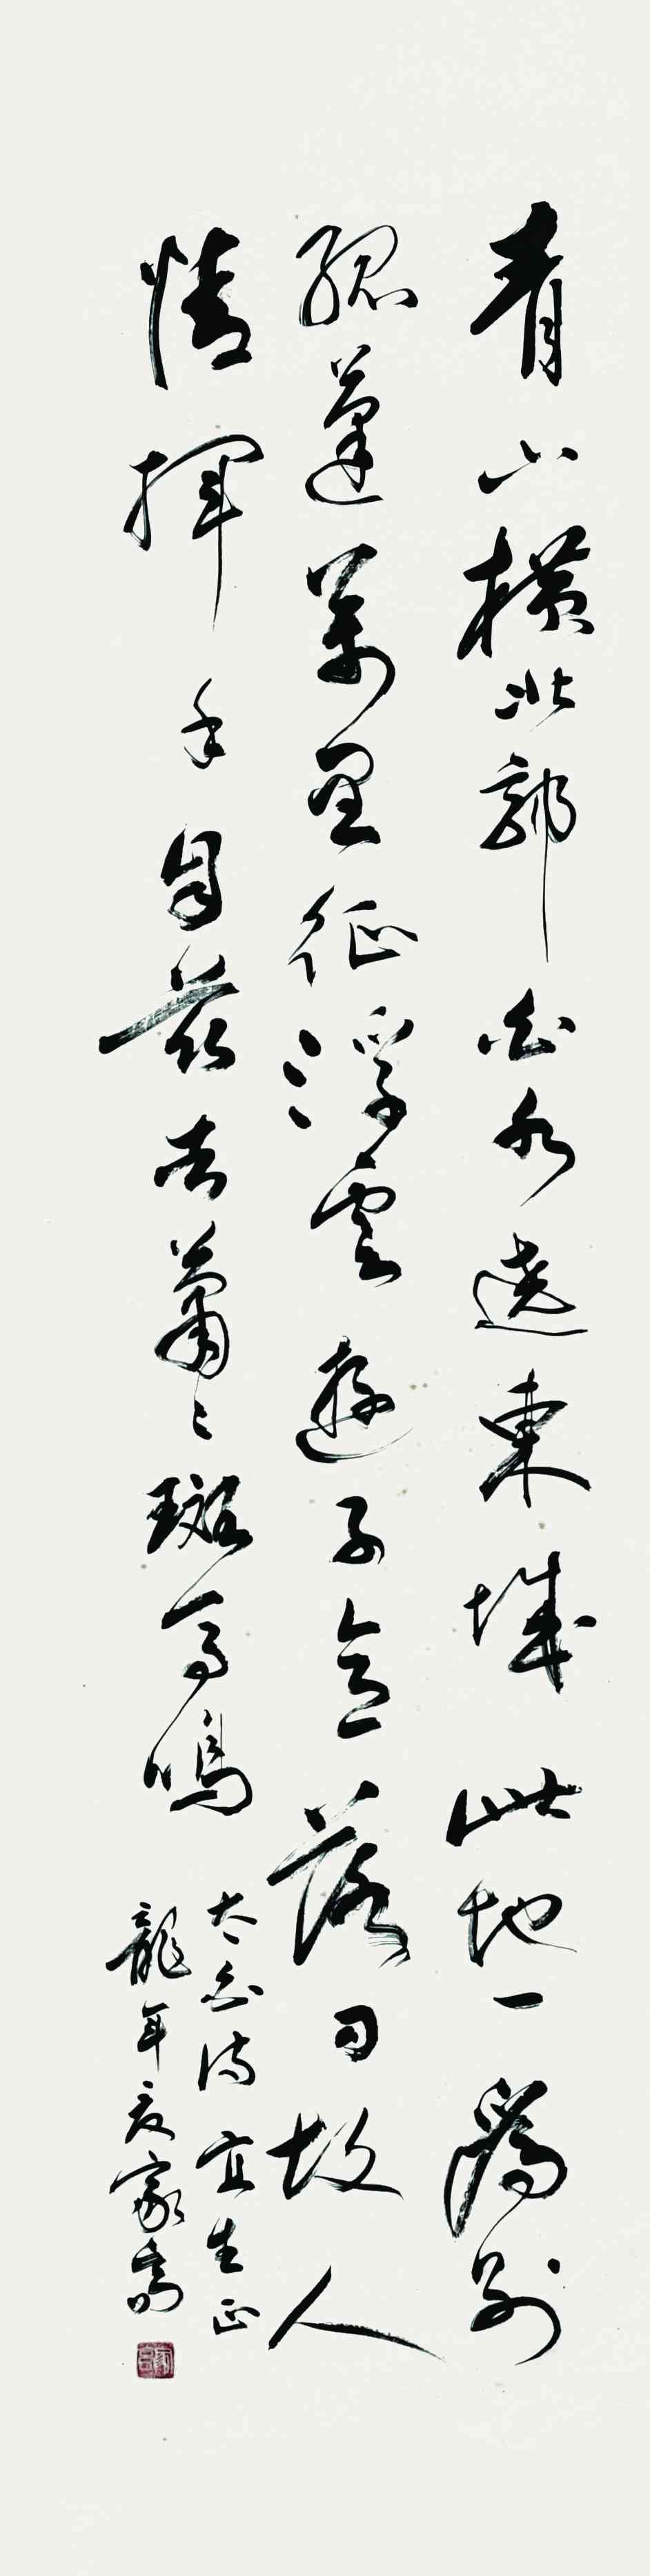 青山橫北郭白水遶東城此地一為別
孤蓬萬里征浮雲遊子意落日故人
情揮手自茲去蕭々斑馬鳴
太白詩 宜生正
龍年夏家齊